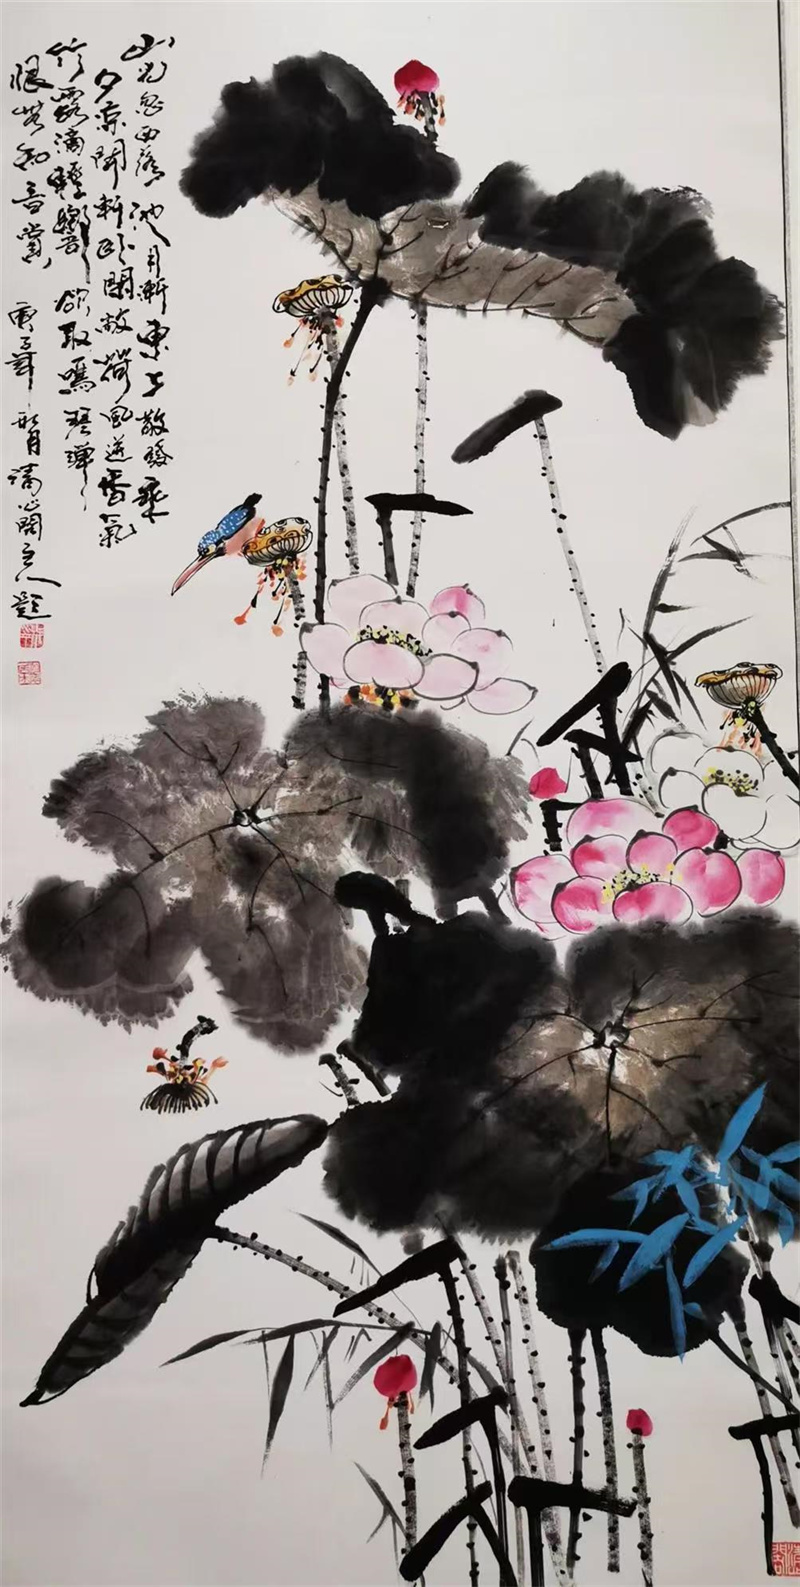 山光忽西落池月漸東上散發乘
夕涼開軒卧閑敞荷風送香氣
竹露滴輕響欲取鳴琴彈
恨無知音賞
庚子年月清心閣主人題